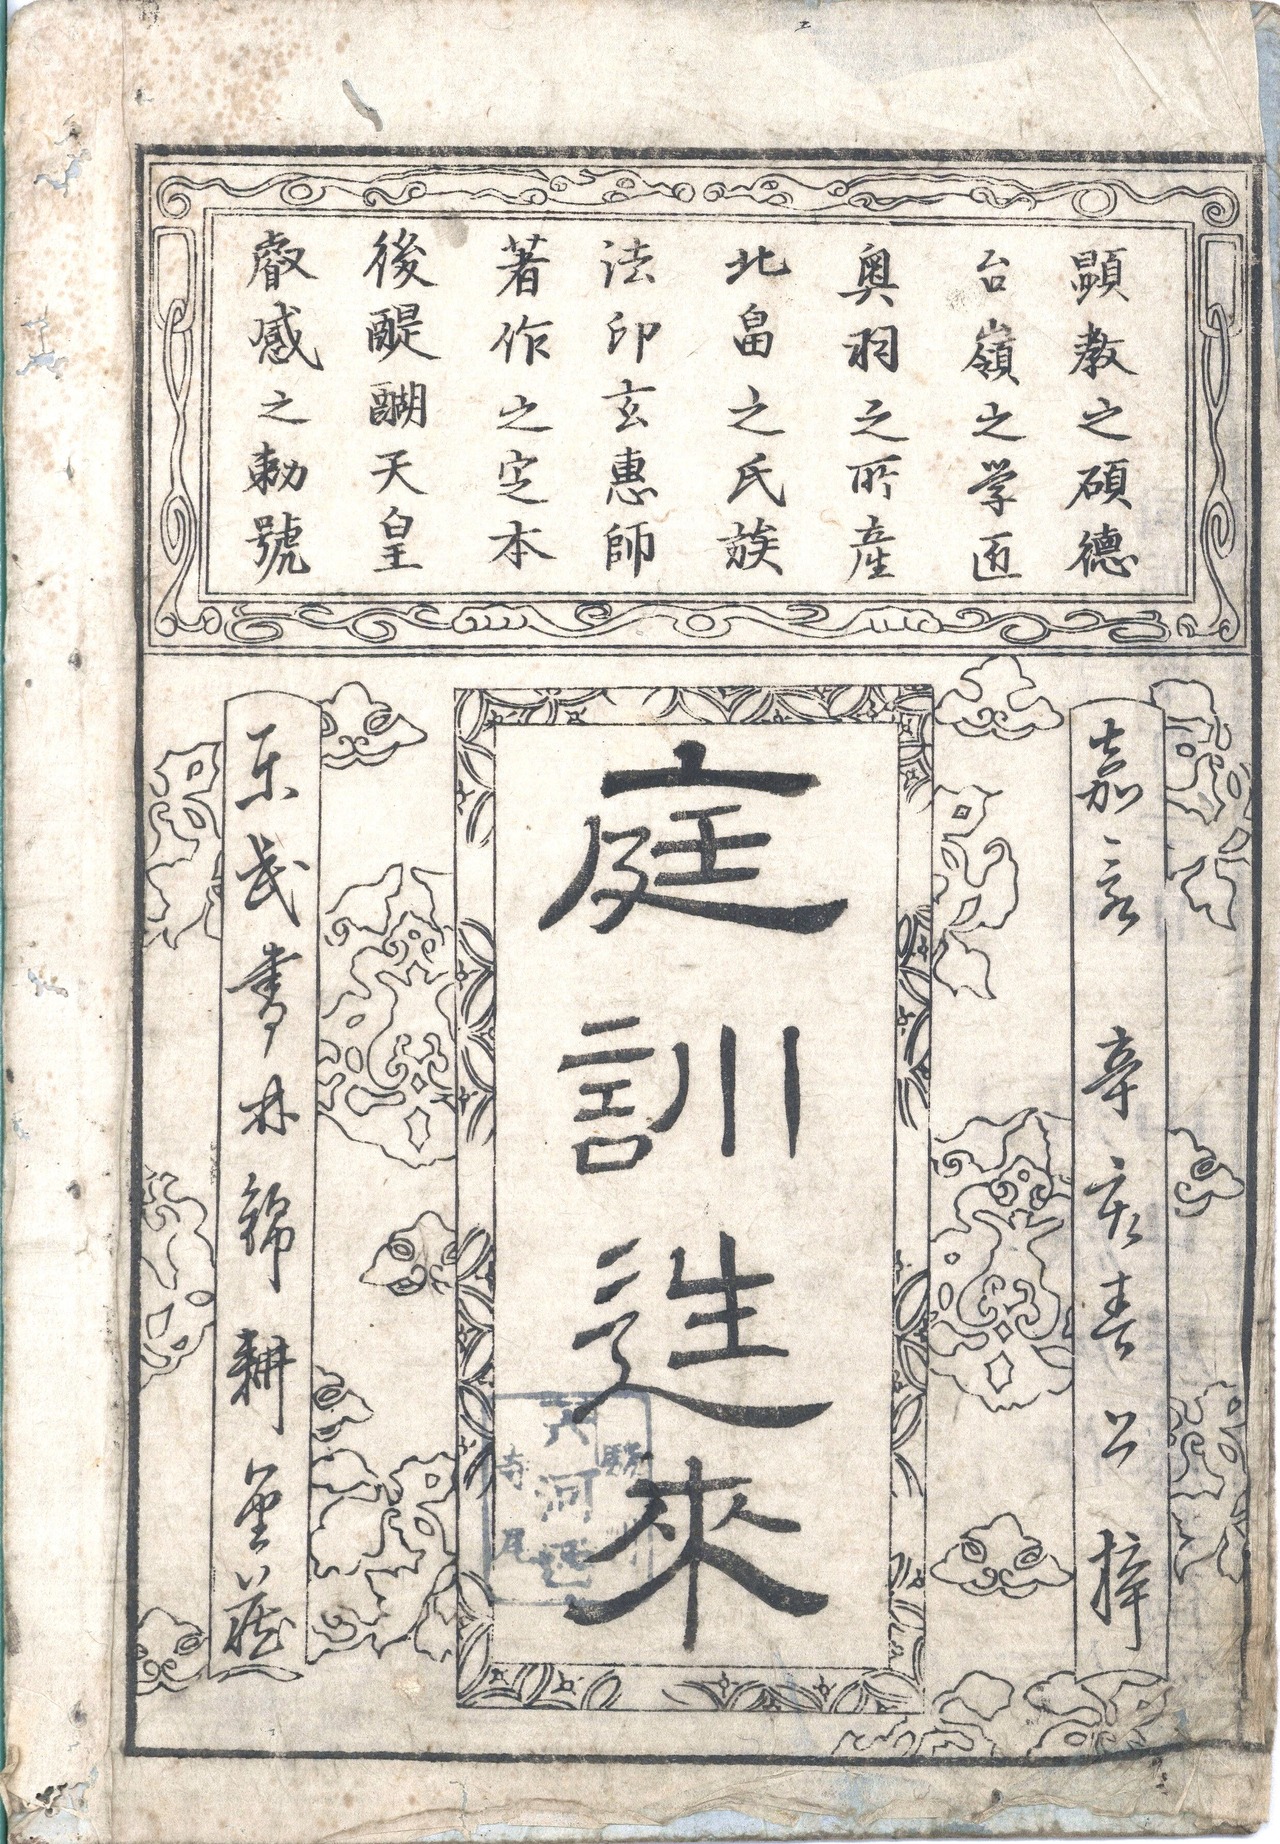 顕教之碩德
台嶺之学匠
奥羽之所産
北畠之氏族
法印玄惠師
著作之定本
後醍醐天皇
叡感之勅號
嘉永辛亥春公梓
庭訓往來
東武書林錦耕堂藏